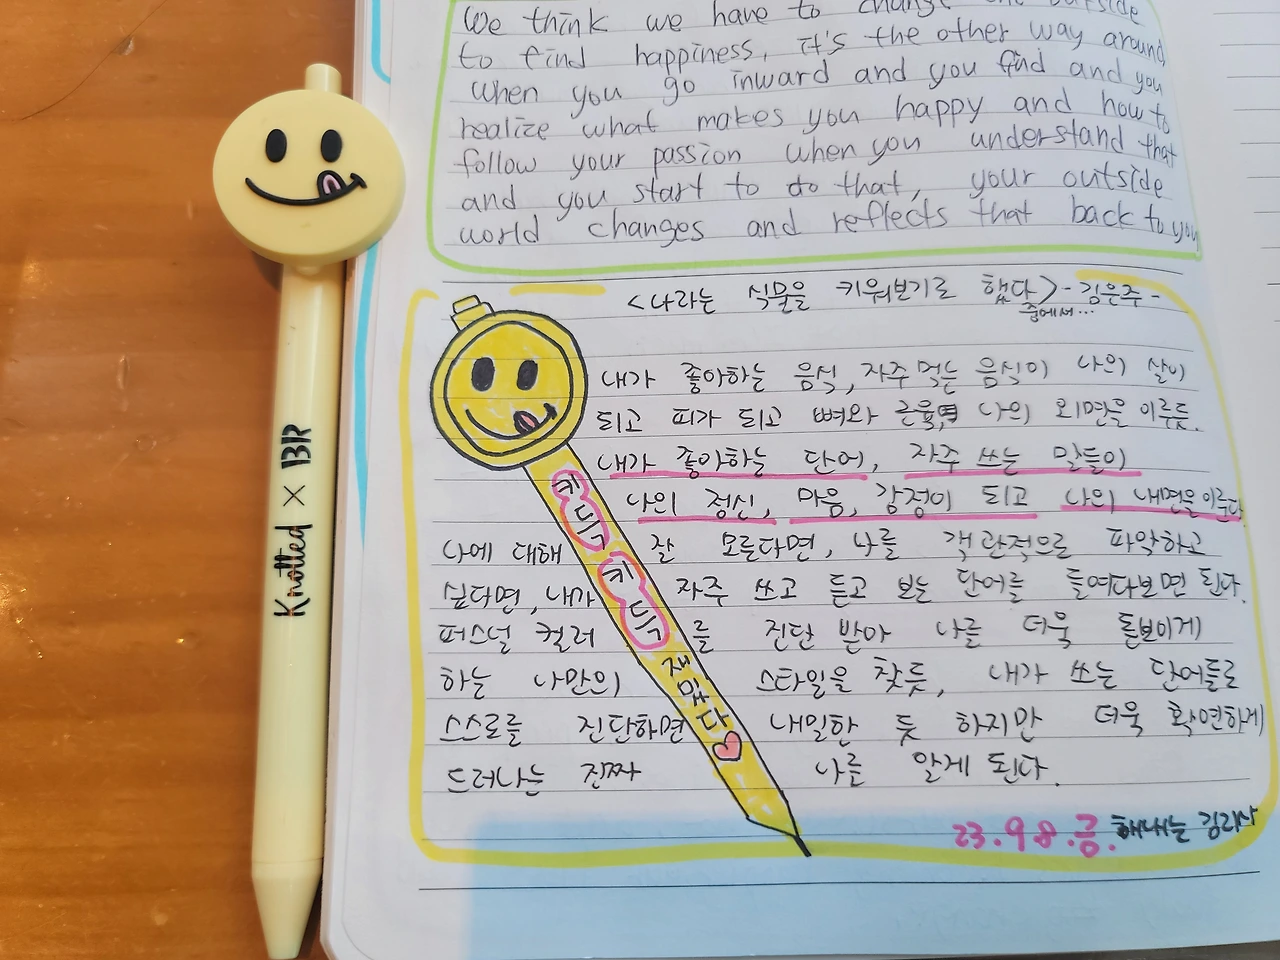 We think we have to change the outside
to find happiness, it's the other way around,
when you go inward and you find and you
realize what makes you happy and how to
follow your passion when you understand that
and you start to do that, your outside
world changes and reflects that back to you
<나라는 식물을 키워보기로 했다> - 김은주 -
중에서...
내가 좋아하는 음식, 자주 먹는 음식이 나의 살이
되고 피가 되고 뼈와 근육, 나의 외면을 이루듯.
내가 좋아하는 단어, 자주 쓰는 말들이
나의 정신, 마음, 감정이 되고 나의 내면을 이룬다
나에 대해 잘 모른다면, 나를 객관적으로 파악하고
싶다면, 내가 자주 쓰고 듣고 보는 단어를 들여다보면 된다.
퍼스널 컬러를 진단 받아 나를 더욱 돋보이게
하는 나만의 스타일을 찾듯, 내가 쓰는 단어들로
스스로를 진단하면 내밀한 듯 하지만 더욱 확연하게
드러나는 진짜 나를 알게 된다.
키득
키득
재밌다
23.9.8.금. 해내는 김리사
Knotted × BR